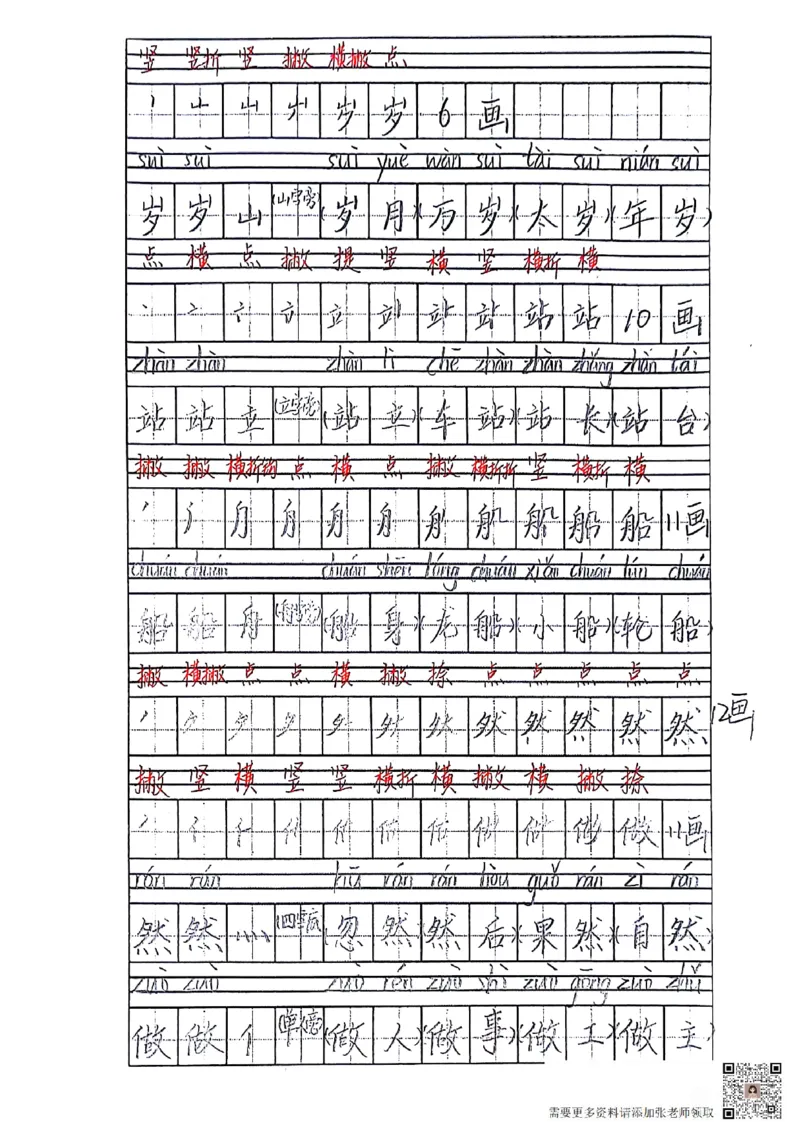 竖 竖折 竖 撇 横撇 点
岁 岁 6 画
suì suì suì yuè wàn suì tài suì nián suì
岁 岁 山 (山字旁) (岁 月) (万 岁) (太 岁) (年 岁)
点 横 点 撇 提 竖 横 竖 横折 横
立 站 站 10 画
zhàn zhàn zhàn lì chē zhàn zhàn zhǎng zhàn tái
站 站 立 (立字旁) (站 立) (车 站) (站 长) (站 台)
撇 撇 横折钩 点 横 点 撇 横折折 竖 横折 横
月 舟 舟 船 船 船 11画
chuán chuán chuán shēn lóng chuán xiǎo chuán lún chuán
船 船 舟 (舟字旁) (船 身) (龙 船) (小 船) (轮 船)
撇 横撇 点 点 横 撇 捺 点 点 点 点 点
然 然 然 然 12画
撇 竖 横 竖 竖 横折 横 撇 横 撇 捺
估 做 做 11画
rán rán rán rán hòu guǒ rán zì rán
然 然 灬 (忽 然) (然 后) (果 然) (自 然)
zuò zuò zuò rén zuò shì zuò gōng zuò zhǔ
做 做 亻 (单人旁) (做 人) (做 事) (做 工) (做 主)
需要更多资料请添加张老师领取